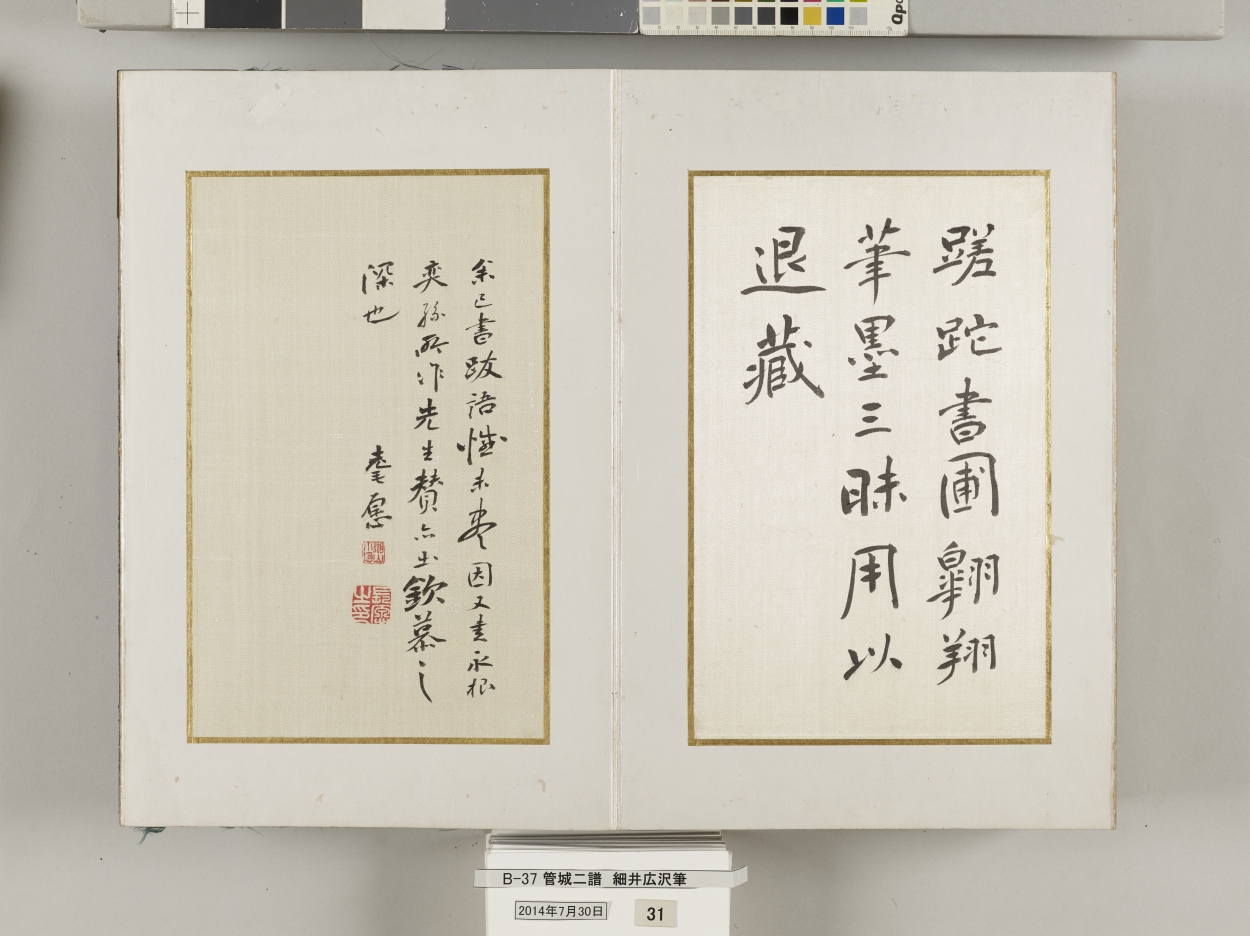 蹉跎書圃翺翔
筆墨三昧用以
退藏
余已書跋語未盡因又書永根
奕孫所作先生賛亦出欽慕之
深也
B-37 管城二譜 細井広沢筆
2014年7月30日
31